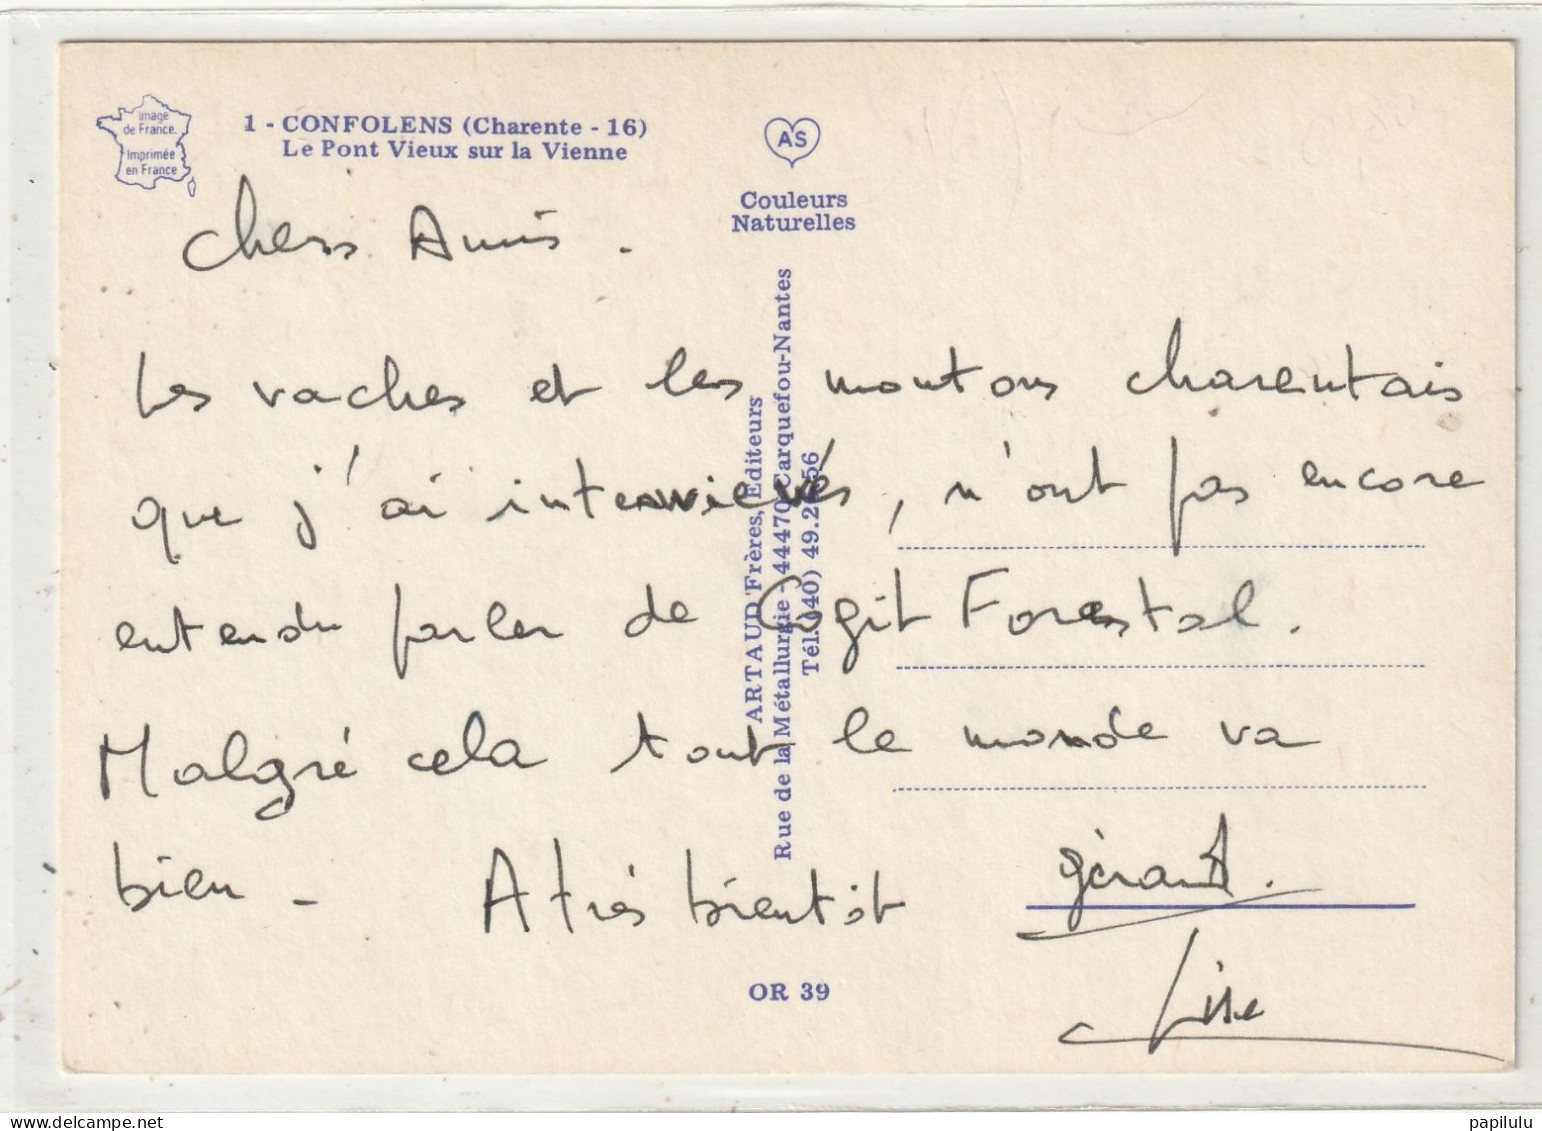 Image
de France.
Imprimée
en France
1 - CONFOLENS (Charente - 16)
Le Pont Vieux sur la Vienne
AS
Couleurs
Naturelles
Chers Amis.
Les vaches et les moutons charentais
que j'ai interviewés, n'ont pas encore
entendu parler de Cogit Forestal.
Malgré cela tout le monde va
bien - A très bientôt
gérard.
Lise
ARTAUD Frères, Editeurs
Rue de la Métallurgie - 44470 Carquefou-Nantes
Tél. (40) 49.2 56
OR 39
papilulu